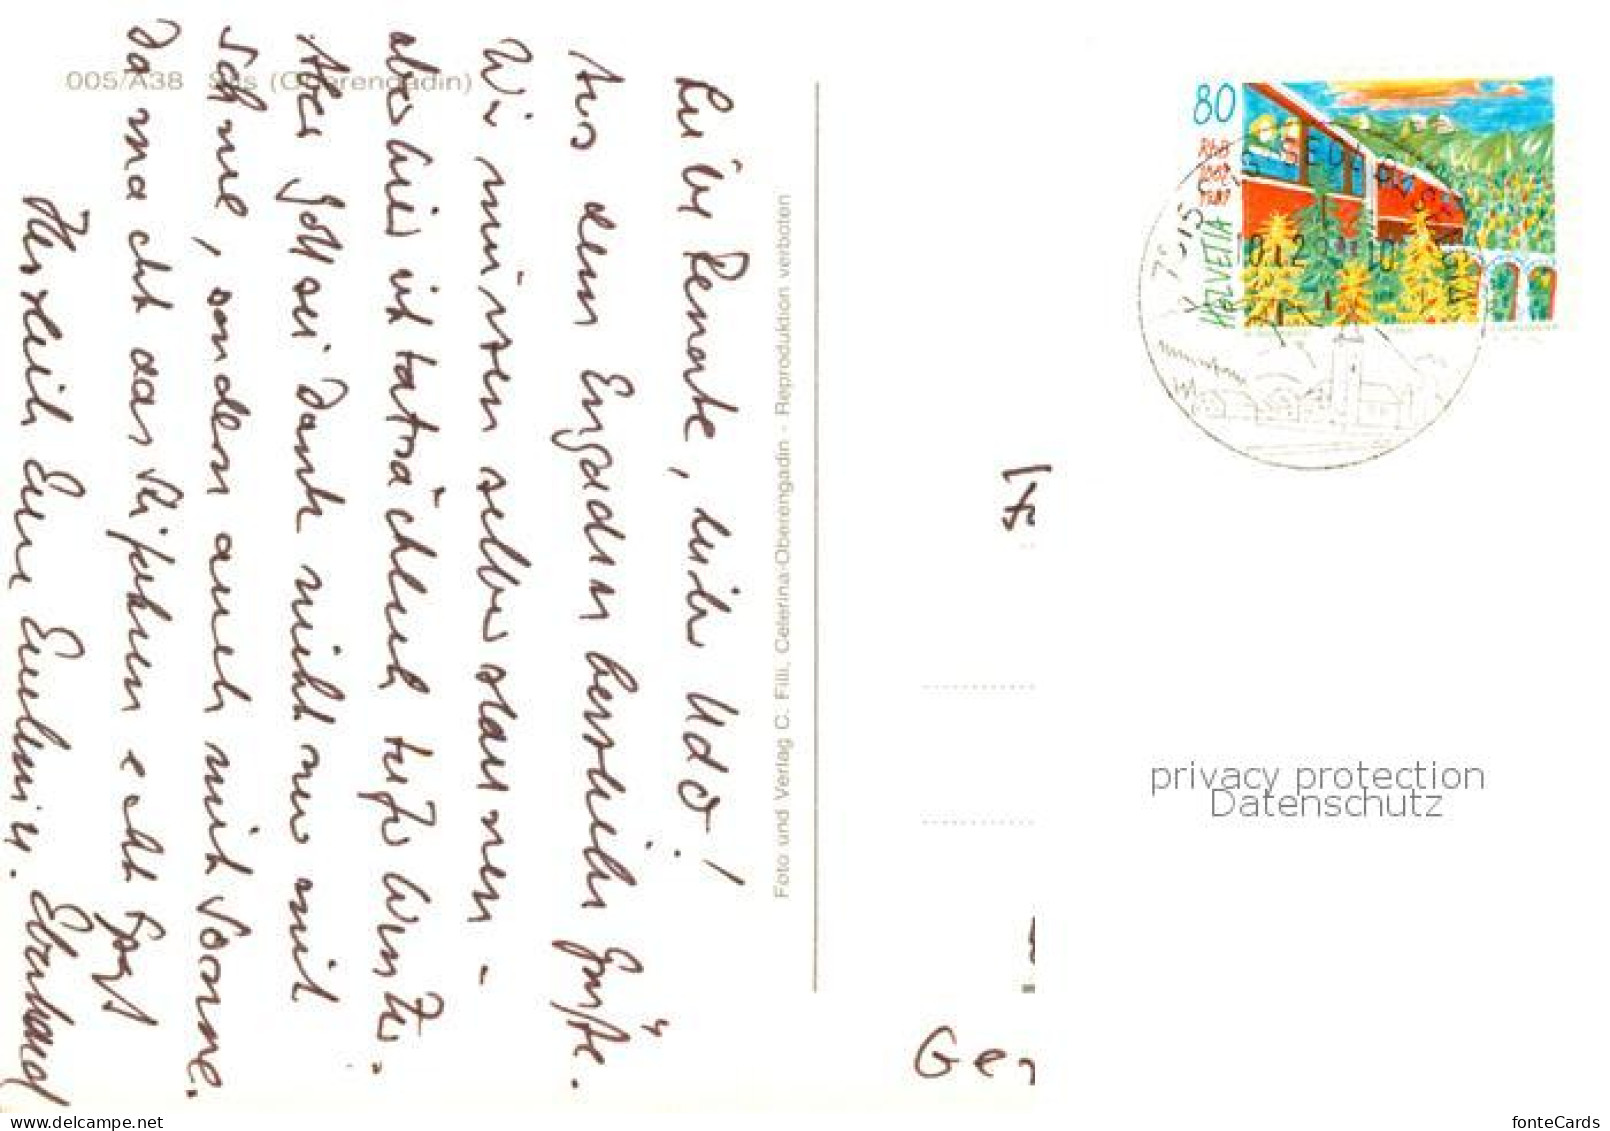 005/A38 Sils (Oberengadin)
Liebe Renate, lieber Udo!
Aus dem Engadin herzliche Grüße.
Wir müssen selber staunen -
aber hier ist tatsächlich tiefer Winter.
Aber Gott sei Dank nicht nur mit
Schnee, sondern auch mit Sonne.
Da macht das Skifahren echt Spaß
Herzlich Eure Evelin u. Eberhard
Foto und Verlag C. Filli, Celerina-Oberengadin - Reproduktion verboten
80
RhB
HELVETIA
Ger
privacy protection
Datenschutz
fonteCards